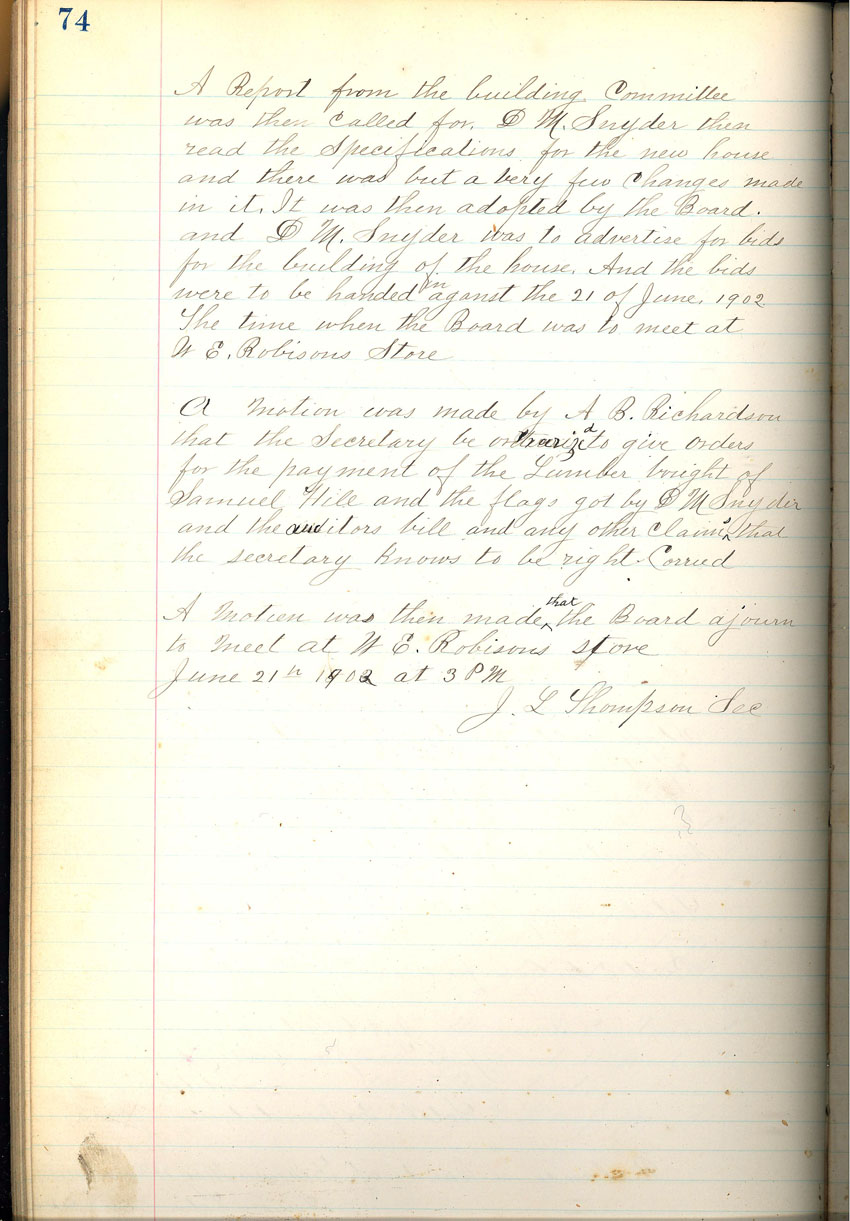 74
A Report from the building Committee
was then called for. D M. Snyder then
read the Specifications for the new house
and there was but a very few Changes made
in it. It was then adopted by the Board.
and D M. Snyder was to advertise for bids
for the building of the house. And the bids
were to be handed in aganst the 21 of June. 1902
The time when the Board was to meet at
W E. Robisons Store
A Motion was made by A B. Richardson
that the Secretary be to give orders
for the payment of the Lumber bought of
Samuel Hile and the flags got by D M Snyder
and the auditors bill and any other Claims that
the secretary Knows to be right. Corried
A Motion was then made that the Board ajourn
to Meet at W E. Robisons store
June 21th 1902 at 3 PM
J. L Thompson Sec